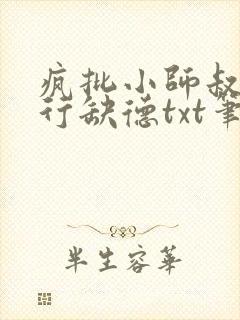 疯批小師叔
行缺德txt筆
半生容華